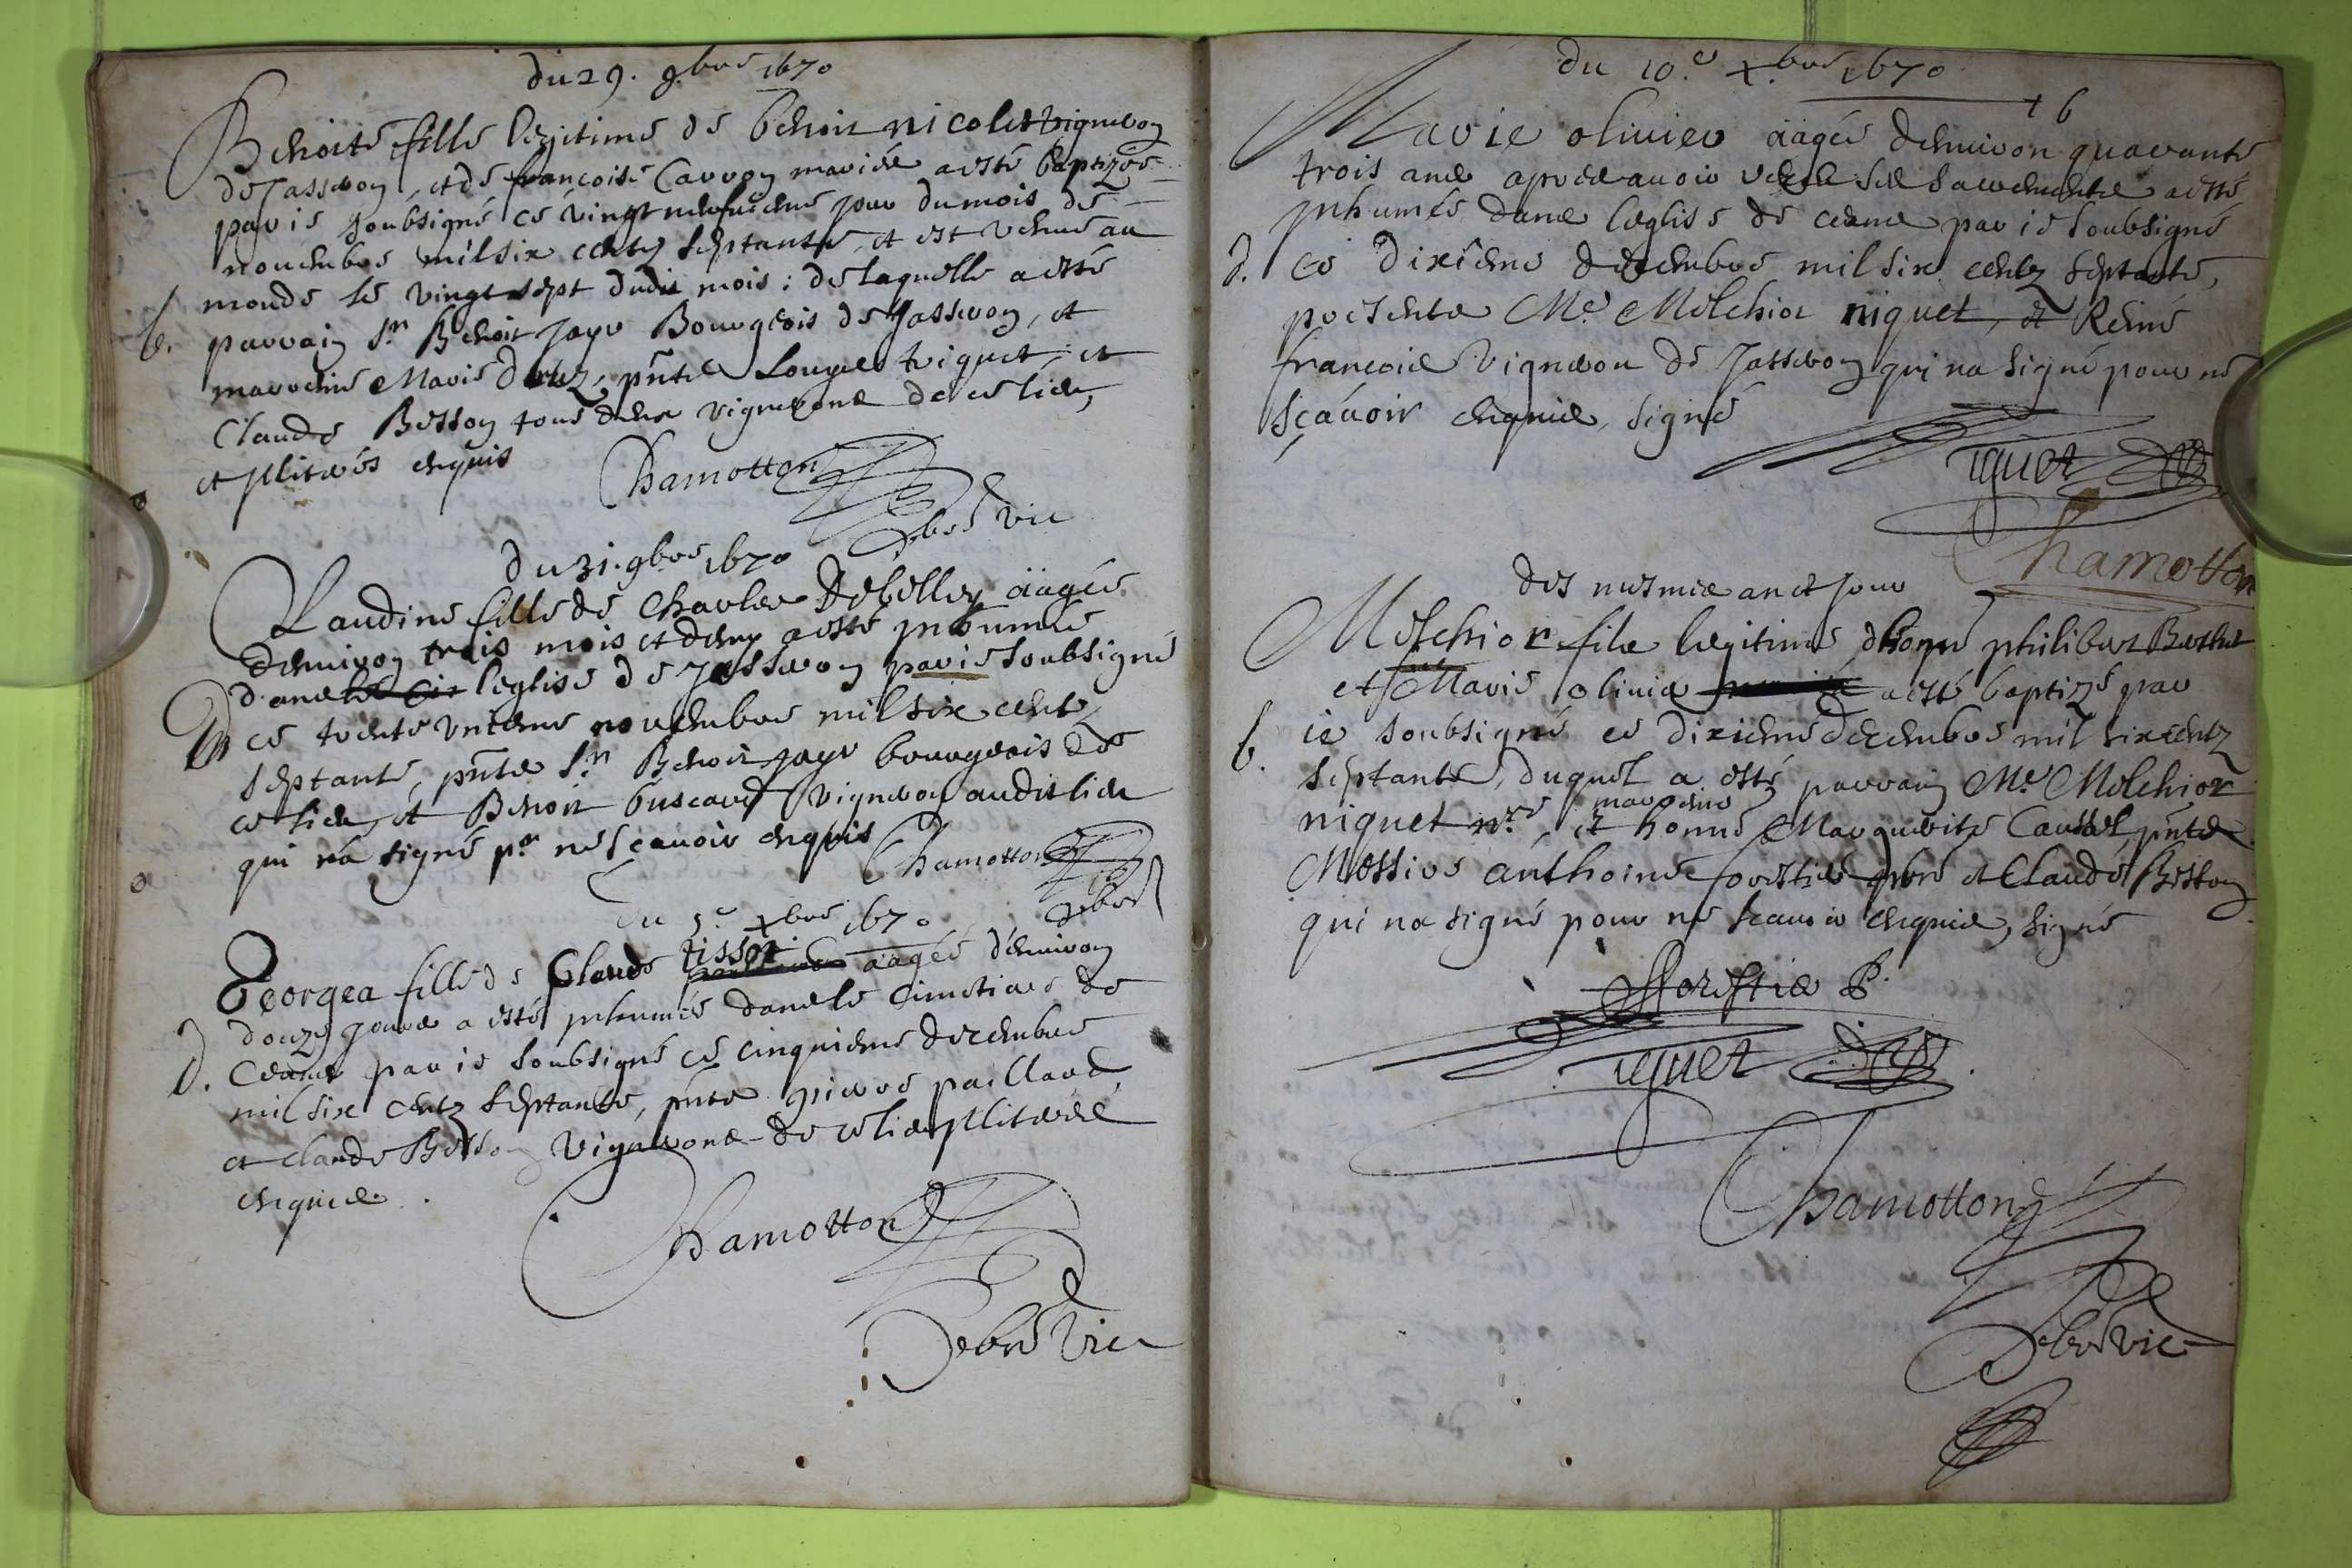 du 29. 9.bre 1670
Benoite fille legitime de benoit nicolet vigneron
de Jasseron, et de francoise Carron mariée a esté baptizée
par ie soubsigné ce vingt neufuieme jour du mois de
nouembre mil six centz septante, et est venue au
monde le vingt sept dudit mois ; de laquelle a esté
b.
parrain Sr. Benoit Jayr Bourgeois de Jasseron, et
marreine Marie, pnte Louys et
Claude Besson tous deux vignerons de ce lieu,
et jllitarés enquis
Chamotton
vic
du 31. 9bre 1670
Claudine fille de Charles Debelley aagée
denuiron trois mois et demy a esté jnhumée
dans l'eglise de Jasseron par ie soubsigné
ce trente vnieme nouembre mil six centz
septante, pnte Sr. Benoit Jayr bourgeois de
ce lieu, et Benoit buscard vigneron audit lieu
qui na signé pr. ne scauoir enquis
Chamotton
du 5.e xbre 1670
Georgea fille de Claude tissot aagée denuiron
douze jours a esté jnhumée dans le Cimetiere de
d.
Ceans par ie soubsigné ce cinquieme decembre
mil six centz septante, pnte pierre paillard,
et claude Besson vignerons de ce lieu jlliterés
enquis.
Chamotton
vic
du 10.e x.bre 1670
+ 6
Marie oliuier aagée denuiron quarante
trois ans apres auoir receu ses sacrements a esté
jnhumée dans leglise de ceans par ie soubsigné
d.
ce dixieme decembre mil six centz septante,
presents Me. Melchior niquet, et Reiné
francois vigneron de Jasseron qui na signé pour ne
scauoir enquis, signé
iquet
Chamotton
des mesmes an et jour
Melchior fils legitime dhonne philibert Berthet
et Marie oliuier a esté baptizé par
b.
ie soubsigné ce dixieme decembre mil six centz
septante, duquel a esté parrain Me. Melchior
marreine
niquet nre, et honne Marguerite Caussel pnte
Messire anthoine forestier pbre et Claude Besson
qui na signé pour ne scauoir enquis, signé
fforestier P.
iquet
Chamotton
vic